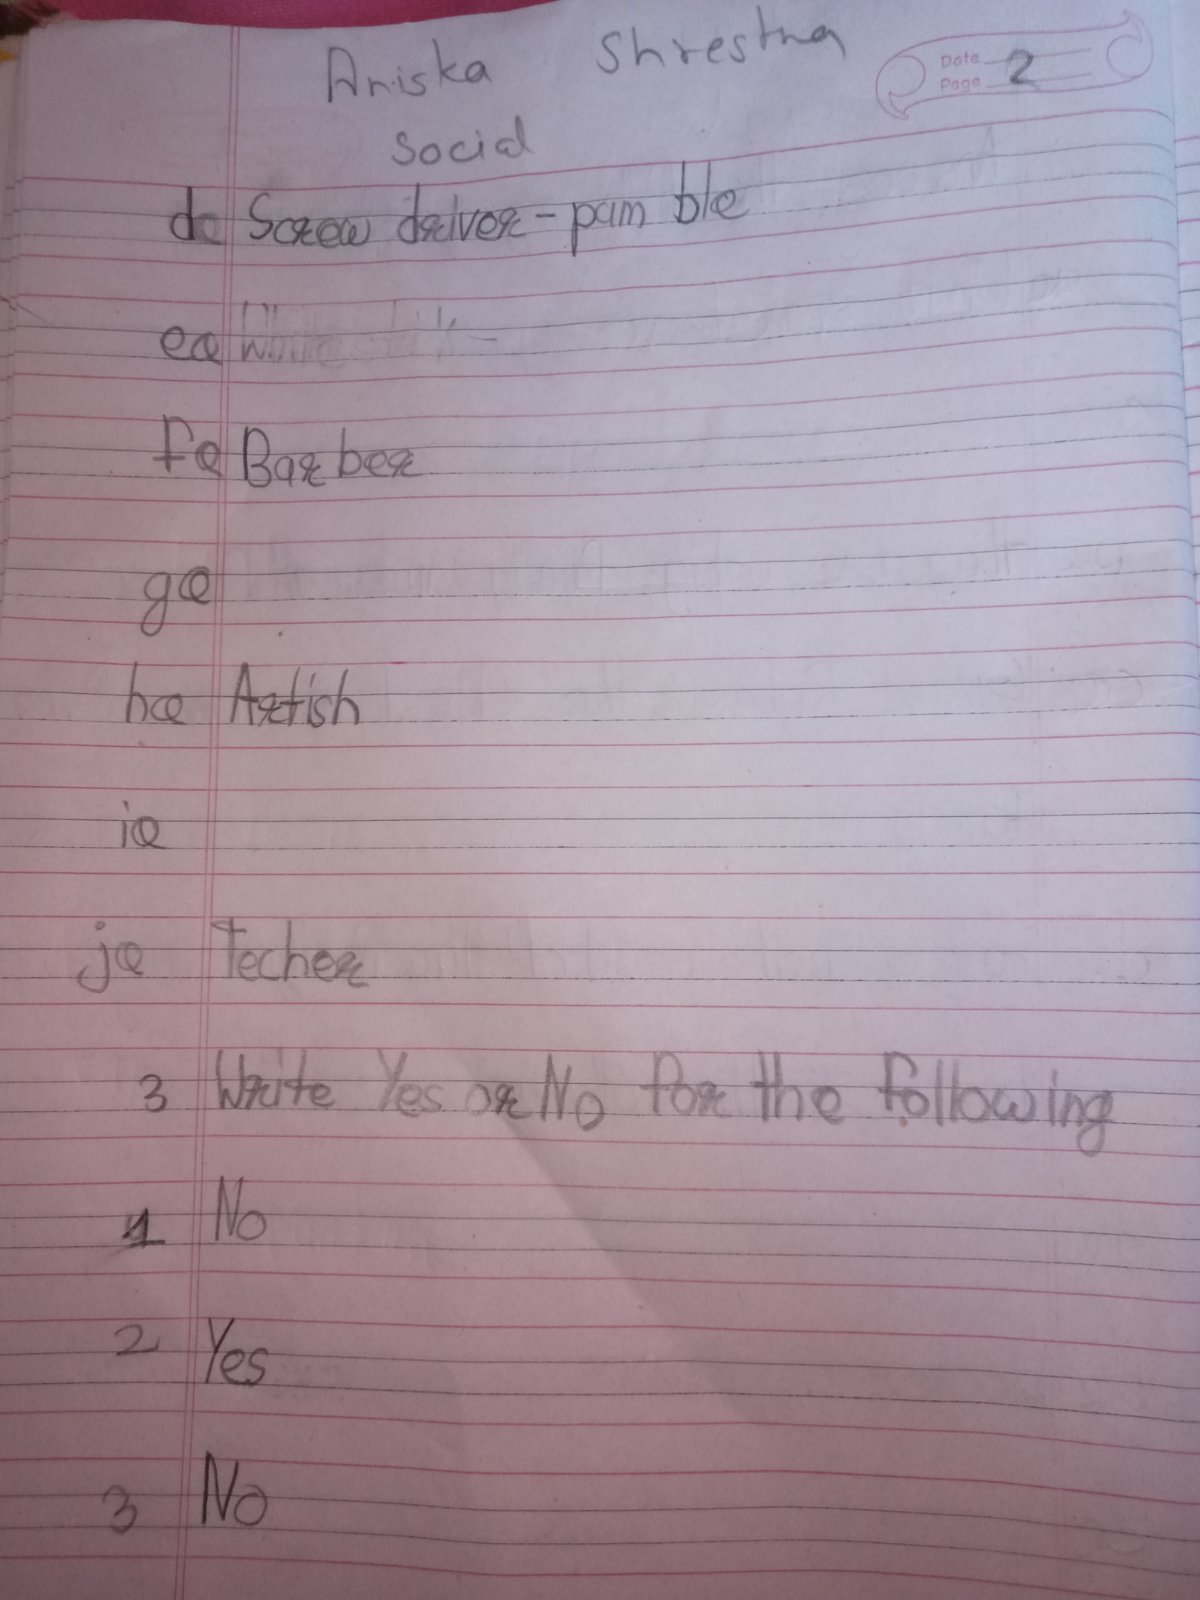 Aniska Shrestha
Date
Page 2
Social
d. Screw driver - pum ble
e.
f. Barber
g.
h. Artish
i.
j. Techer
3 Write Yes or No for the following
1 No
2 Yes
3 No